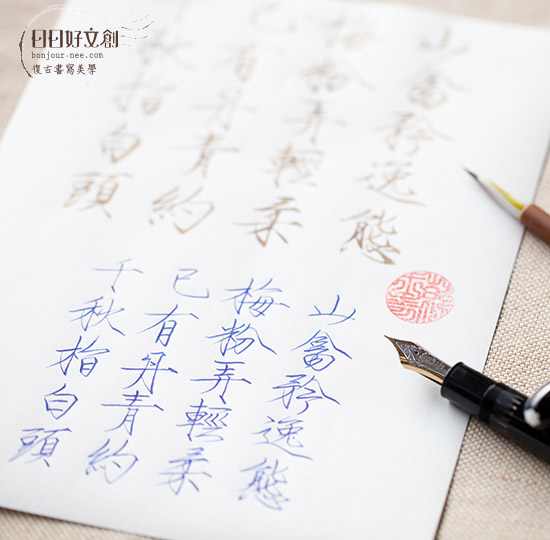 日日好文創
bonjour-nee.com
復古書寫美學
山禽矜逸態
梅粉弄輕柔
已有丹青約
千秋指白頭
山禽矜逸態
梅粉弄輕柔
已有丹青約
千秋指白頭